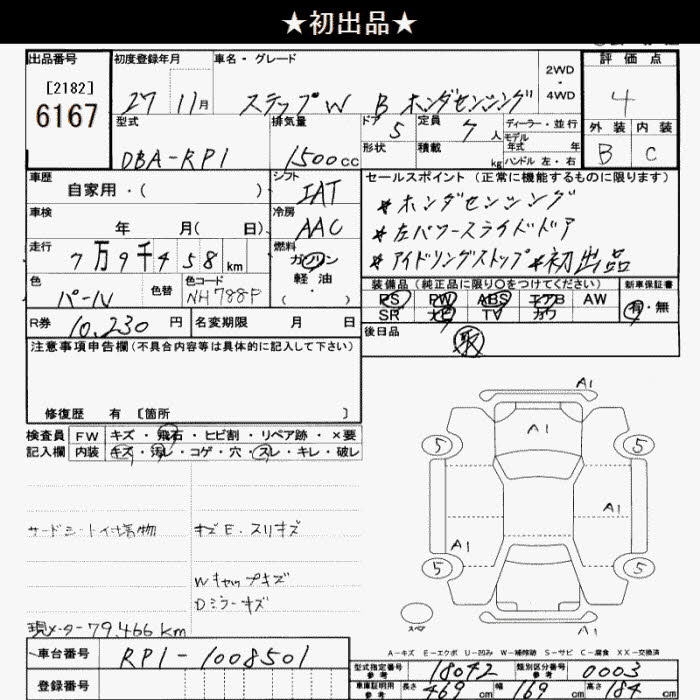 ★初出品★
出品番号 初度登録年月 車名・グレード 2WD・4WD 評価点
[2182]
6167
27 11月 ステップW B ホンダセンシング
4
型式 排気量 ドア 5 定員 7人 ディーラー・並行
モデル年式 年
外装 内装
DBA-RP1 1500cc 形状 積載 kg ハンドル 左・右
B C
車歴 シフト セールスポイント (正常に機能するものに限ります)
自家用・( ) IAT
*ホンダセンシング
車検 冷房
年 月( 日) AAC
*左パワースライドドア
走行 燃料
7万9千458km ガソリン
*アイドリングストップ *初出品
軽油・( )
色 色替 色コード
パール NH788P
装備品 (純品品に限り○をつけてください) 新車保証書
PS PW ABS エアB AW 有・無
SR ナビ TV カワ
R券 10,230円 名変期限 月 日
後日品
取
注意事項申告欄(不具合内容等は具体的に記入して下さい)
修復歴 有 〔箇所 〕
検査員 FW キズ・飛石・ヒビ割・リペア跡・×要
記入欄 内装 キズ・汚レ・コゲ・穴・スレ・キレ・破レ
A1
A1
5 5
A1
A1
5 5
スペア
A1
サードシート付着物 キズE.スリキズ
Wキャップキズ
Dミラーキズ
現メーター79,466km
A-キズ E-エクボ U-凹み W-補修跡 S-サビ C-腐食 XX-交換済
車台番号 RP1-1008501
型式指定番号 参考 18042 類別区分番号 参考 0003
登録番号
車庫証明用 参考 長さ 469cm 幅 169cm 高さ 184cm